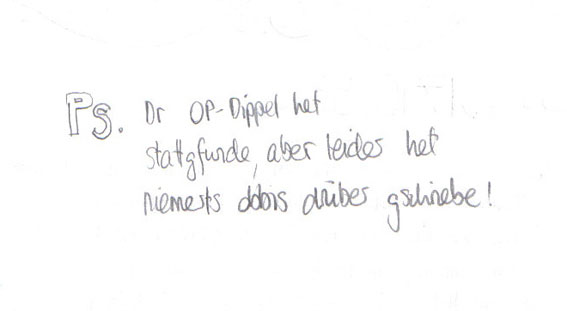 Ps. Dr OP-Dippel het
stattgfunde, aber leider het
niemerts öbbis drüber gschriebe!